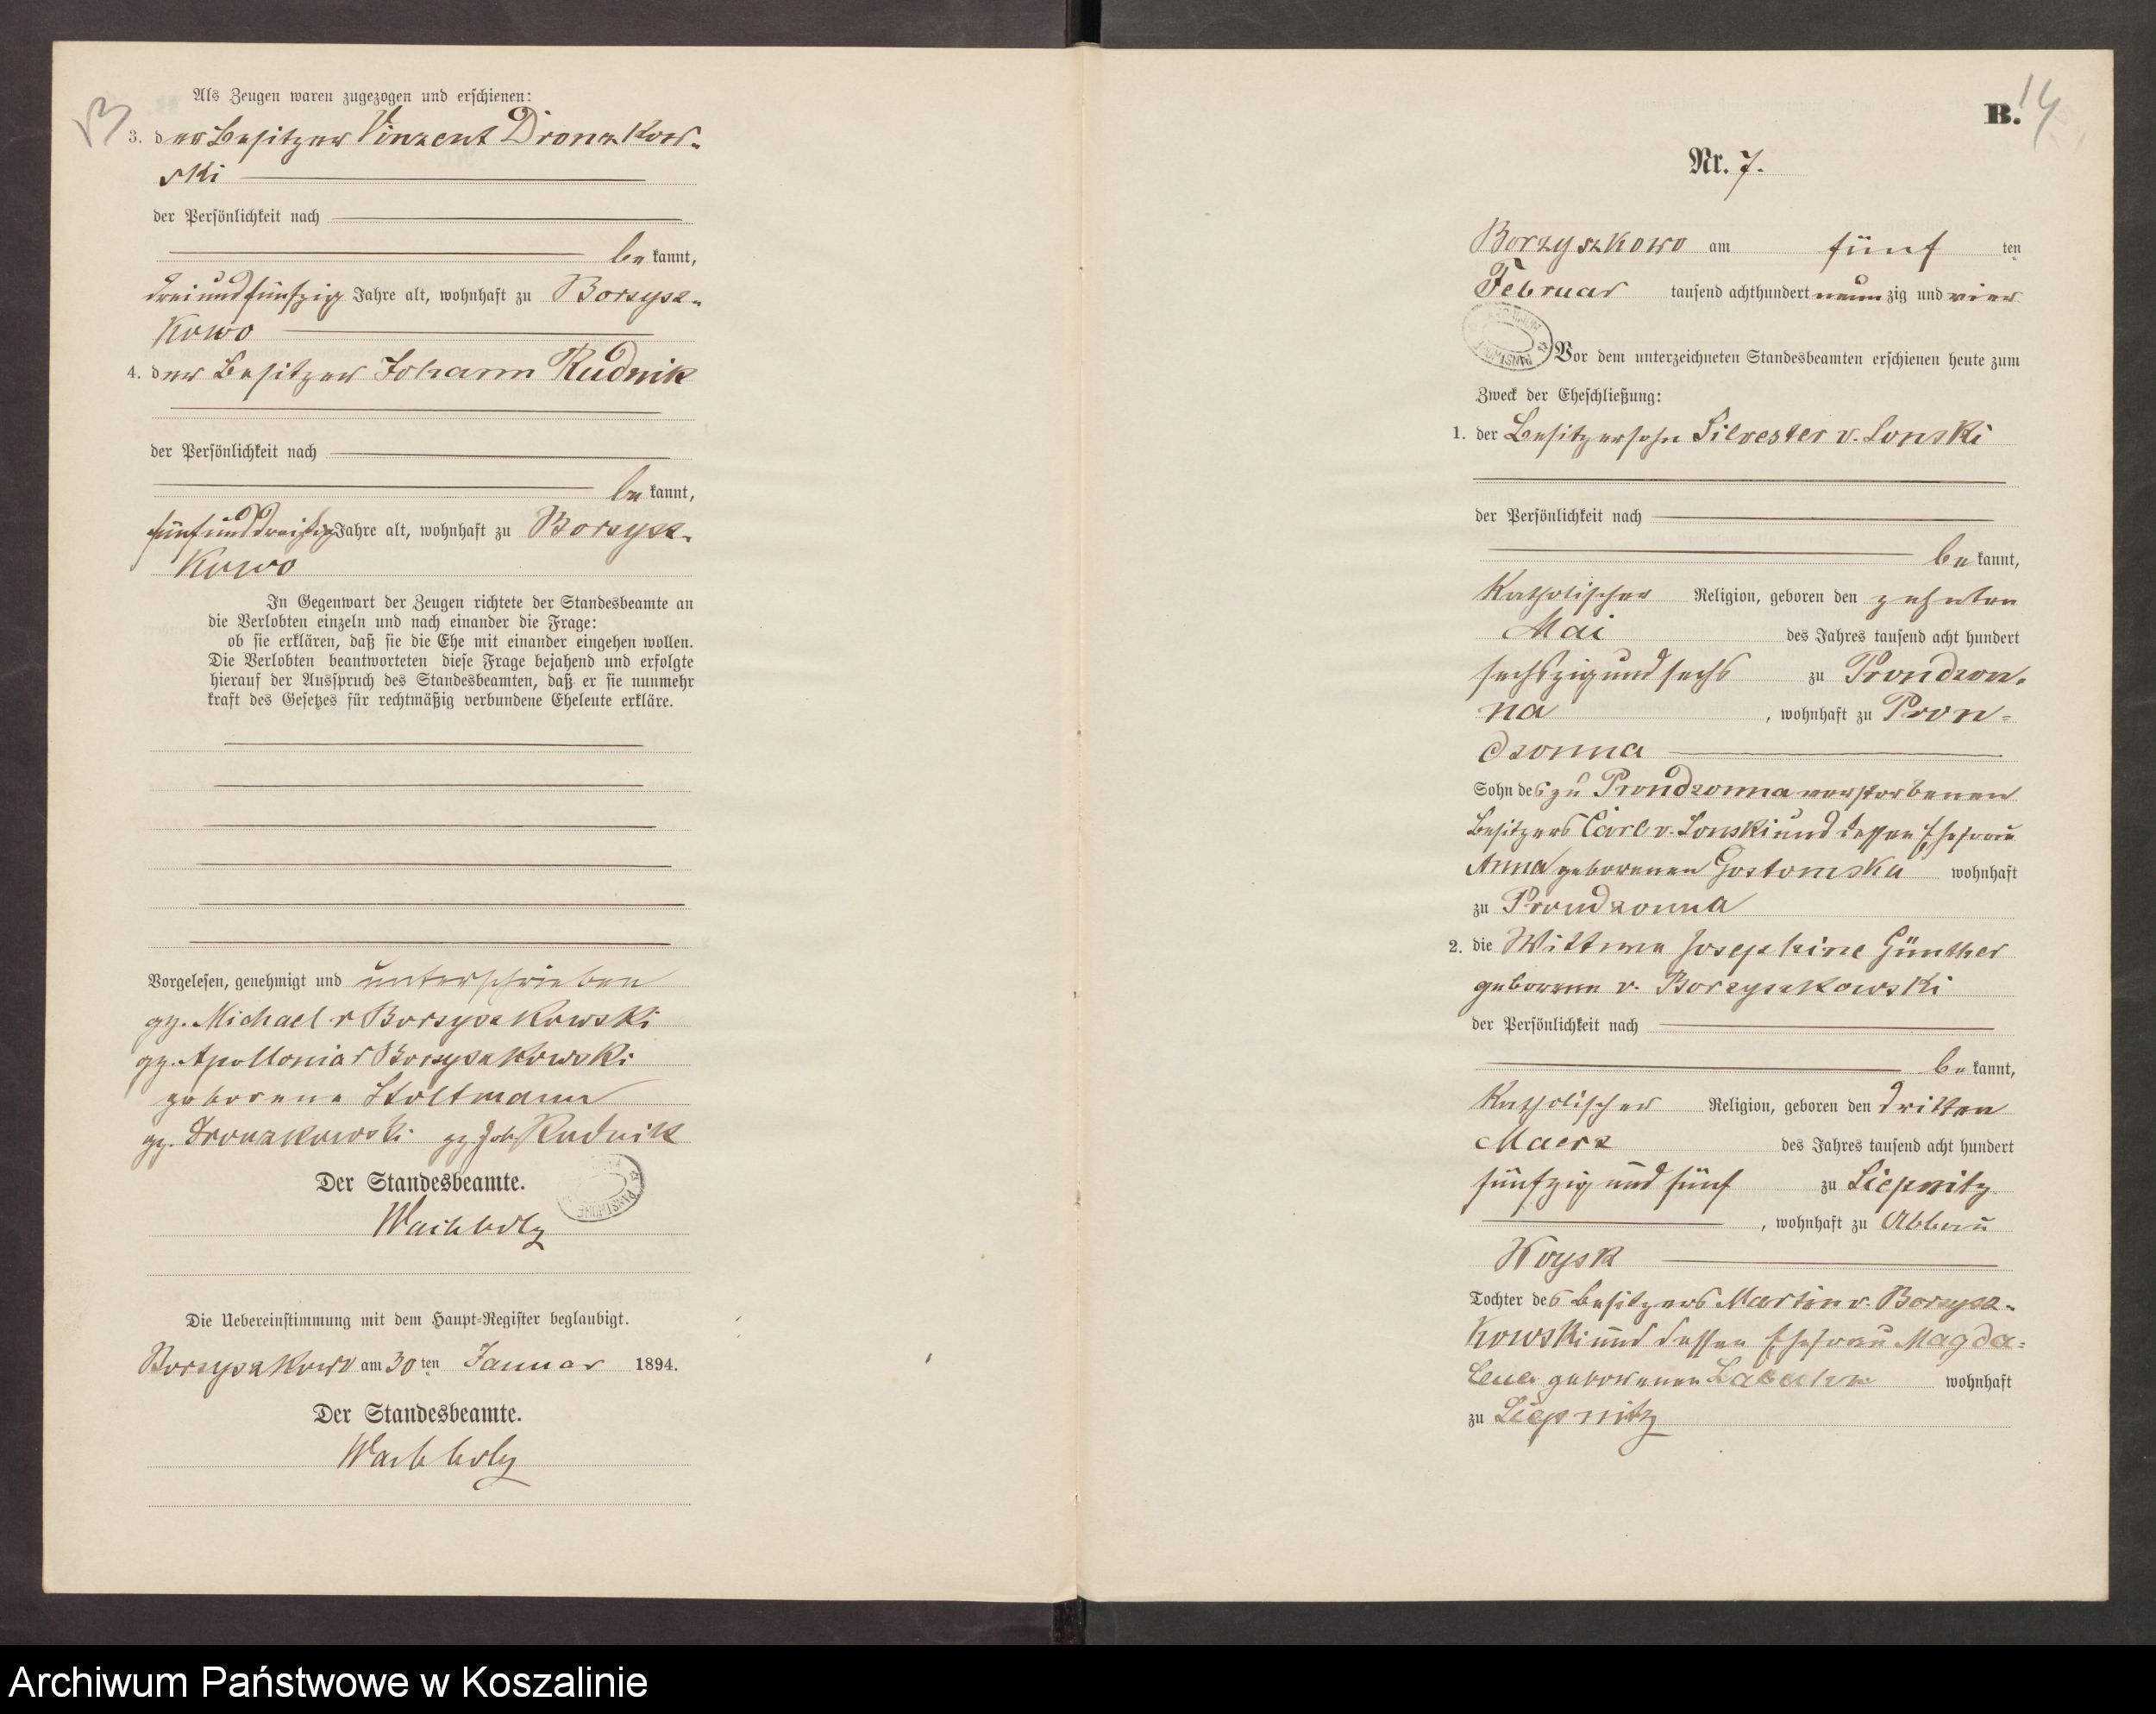 13
Als Zeugen waren zugezogen und erschienen:
3. der Besitzer Vinzent Dronzkow-
ski
der Persönlichkeit nach
bekannt,
dreiundfünfzig Jahre alt, wohnhaft zu Borzysz-
kowo
4. der Besitzer Johann Rudnik
der Persönlichkeit nach
bekannt,
fünfunddreißig Jahre alt, wohnhaft zu Borzysz-
kowo
In Gegenwart der Zeugen richtete der Standesbeamte an
die Verlobten einzeln und nach einander die Frage:
ob sie erklären, daß sie die Ehe mit einander eingehen wollen.
Die Verlobten beantworteten diese Frage bejahend und erfolgte
hierauf der Ausspruch des Standesbeamten, daß er sie nunmehr
kraft des Gesetzes für rechtmäßig verbundene Eheleute erkläre.
Vorgelesen, genehmigt und unterschrieben
gz. Michael v Borzyszkowski
gz. Apollonia v Borzyszkowski
geborene Stoltmann
gz. Dronzkowski gz Joh. Rudnik
Der Standesbeamte.
Wachholz
Die Uebereinstimmung mit dem Haupt-Register beglaubigt.
Borzyszkowo am 30 ten Januar 1894.
Der Standesbeamte.
Wachholz
B. 14
Nr. 7.
Borzyszkowo am fünf ten
Februar tausend achthundert neunzig und vier
Vor dem unterzeichneten Standesbeamten erschienen heute zum
Zweck der Eheschließung:
1. der Besitzersohn Silvester v. Lonski
der Persönlichkeit nach
bekannt,
katholischer Religion, geboren den zehnten
Mai des Jahres tausend acht hundert
sechszig und sechs zu Prondzon-
na, wohnhaft zu Pron-
dzonna
Sohn des zu Prondzonna verstorbenen
Besitzers Carl v. Lonski und dessen Ehefrau
Anna geborenen Gostomska wohnhaft
zu Prondzonna
2. die Wittwe Josephine Günther
geborene v. Borzyszkowski
der Persönlichkeit nach
bekannt,
katholischer Religion, geboren den dritten
Maerz des Jahres tausend acht hundert
fünfzig und fünf zu Liepnitz
, wohnhaft zu Abbau
Woysk
Tochter des Besitzers Martin v. Borzysz-
kowski und dessen Ehefrau Magda-
lena geborenen wohnhaft
zu Liepnitz
Archiwum Państwowe w Koszalinie